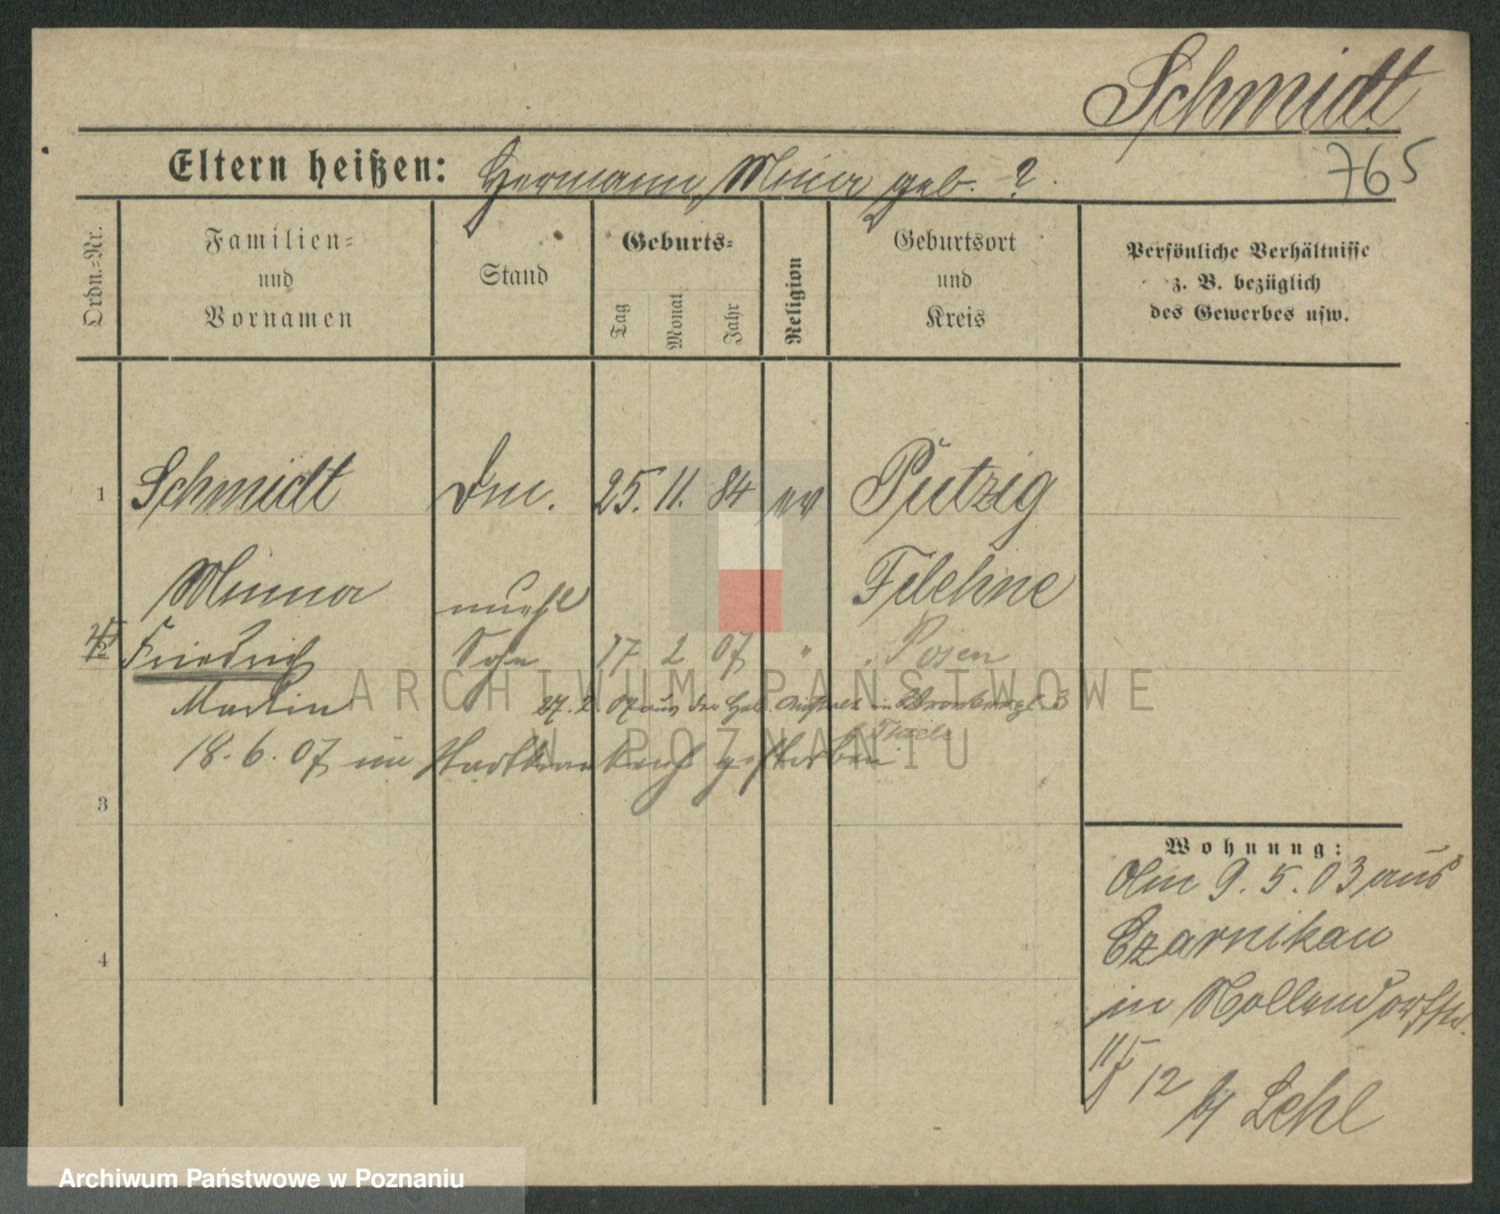 Schmidt
Eltern heißen: Hermann, Minna geb. ?
765
Ordn.=Nr.
Familien=
und
Vornamen
Stand
Geburts=
Tag
Monat
Jahr
Religion
Geburtsort
und
Kreis
Persönliche Verhältnisse
z. B. bezüglich
des Gewerbes usw.
1 Schmidt 25. 11. 84 ev Putzig
Minna Filehne
2 Friedrich Sohn 17 2 07 " Posen
Martin 27. 2. 07 aus der Heb. Anstalt in
18. 6. 07 im Stadtkrankenh gestorben
3
4
Wohnung:
9. 5. 03 aus
Czarnikau
in Nollendorfstr.
12 b/ Lehl
ARCHIWUM PAŃSTWOWE
W POZNANIU
Archiwum Państwowe w Poznaniu